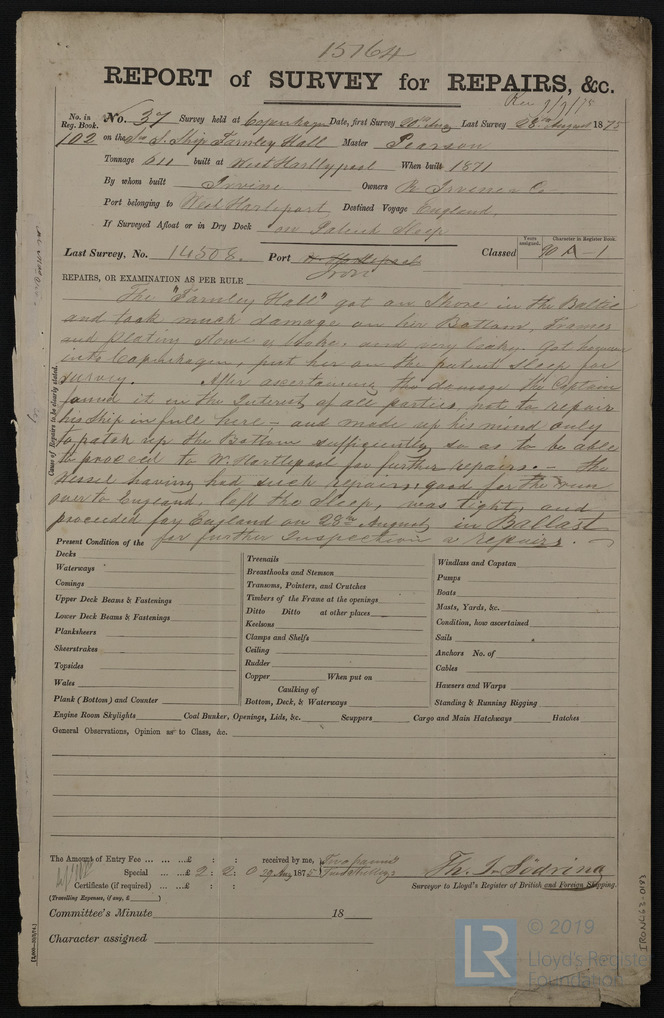 15764
REPORT of SURVEY for REPAIRS, &c.
Rec 9/9/75
No. in Reg. Book. No. 37 Survey held at Copenhagen Date, first Survey 20th Aug Last Survey 28th August 1875
102 on the S. Ship Farnley Hall Master Pearson
Tonnage 611 built at West Hartlepool When built 1871
By whom built Irvine Owners R Irvine & Co
Port belonging to West Hartlepool Destined Voyage England.
If Surveyed Afloat or in Dry Dock on Patent Sleep
Years assigned. Character in Register Book.
Last Survey, No. 14508. Port W. Hartlepool Classed 90 A-1
Iron
REPAIRS, OR EXAMINATION AS PER RULE
Cause of Repairs to be clearly stated.
The "Farnley Hall" got on Shore in the Baltic
and took much damage on her Bottom, Frames
and Plating and very leaky. Got
into Copenhagen, put her on the patent Sleep for
survey. After ascertaining the damage the Captain
found it in the Interest of all parties, not to repair
his ship in full here, and made up his mind only
to patch up the Bottom sufficiently so as to be able
to proceed to W. Hartlepool for further repairs. - The
vessel having had such repairs, good for the run
over to England, left the Sleep, was tight, and
proceeded for England on 28th August in Ballast
for further Inspection & repairs.
Present Condition of the
Decks
Waterways
Comings
Upper Deck Beams & Fastenings
Lower Deck Beams & Fastenings
Planksheers
Sheerstrakes
Topsides
Wales
Plank (Bottom) and Counter
Treenails
Breasthooks and Stemson
Transoms, Pointers, and Crutches
Timbers of the Frame at the openings
Ditto Ditto at other places
Keelsons
Clamps and Shelfs
Ceiling
Rudder
Copper When put on
Caulking of
Bottom, Deck, & Waterways
Windlass and Capstan
Pumps
Boats
Masts, Yards, &c.
Condition, how ascertained
Sails
Anchors No. of
Cables
Hawsers and Warps
Standing & Running Rigging
Engine Room Skylights Coal Bunker, Openings, Lids, &c. Scuppers Cargo and Main Hatchways Hatches
General Observations, Opinion as to Class, &c.
The Amount of Entry Fee ... ... ...£ : : received by me, Two pounds
Special ... ...£ 2 : 2 : 0 29 Aug 1875 Two Shillings
Th. J. Södring
Certificate (if required) ...£ : : Surveyor to Lloyd's Register of British and Foreign Shipping.
(Travelling Expenses, if any, £ )
Committee's Minute 18
Character assigned
IRON 0183
LR
© 2019
Lloyd's Register
Foundation